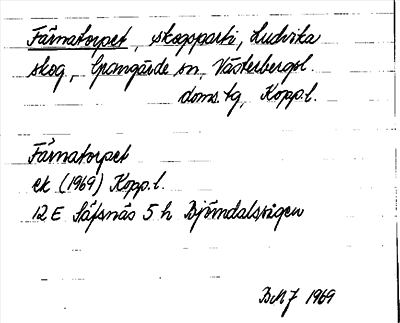 Färnatorpet, skogsparti, Ludvika
skog, Grangärde sn, Västerbergsl.
doms.tg, Kopp.l.
Färnatorpet
ek (1969) Kopp.l.
12 E Säfsnäs 5 h Björndalsvägen
BMJ 1969